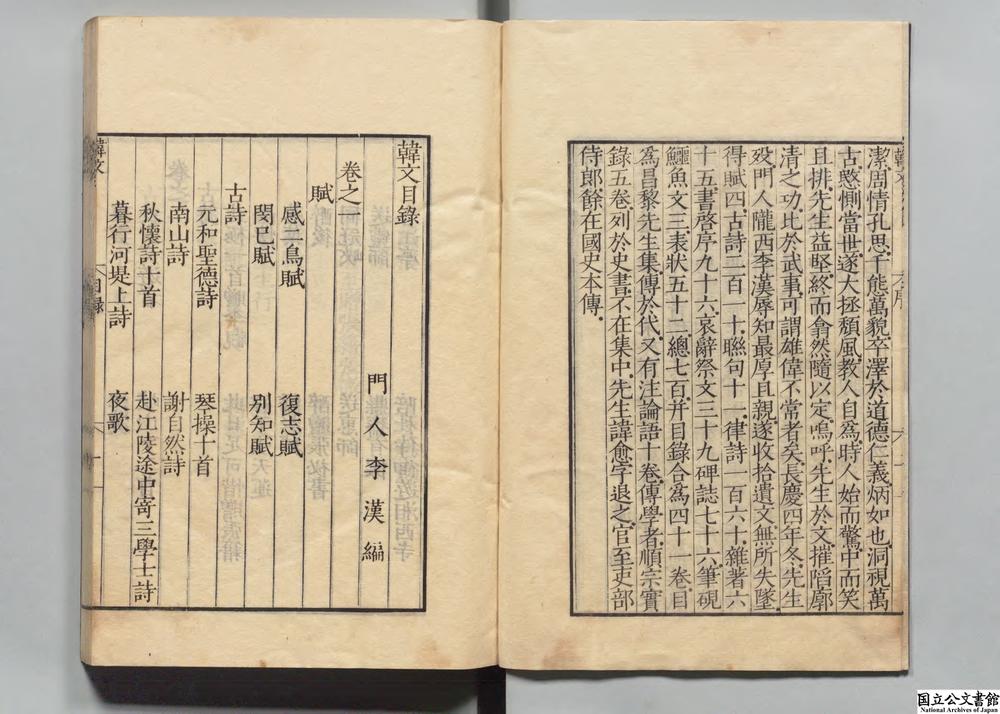 潔周情孔思千態萬貌卒澤於道德仁義炳如也洞視萬
古愍惻當世遂大拯頹風教人自爲時人始而驚中而笑
且排先生益堅終而翕然隨以定嗚呼先生於文摧陷廓
清之功比於武事可謂雄偉不常者矣長慶四年冬先生
歿門人隴西李漢辱知最厚且親遂收拾遺文無所失墜
得賦四古詩二百一十聯句十一律詩一百六十雜著六
十五書啓序九十六哀辭祭文三十九碑誌七十六筆硯
鱷魚文三表狀五十二總七百并目錄合爲四十一卷目
爲昌黎先生集傳於代又有注論語十卷傳學者順宗實
錄五卷列於史書不在集中先生諱愈字退之官至吏部
侍郎餘在國史本傳
韓文目錄
門人李漢編
卷之一
賦
感二鳥賦 復志賦
閔己賦 別知賦
古詩
元和聖德詩 琴操十首
南山詩 謝自然詩
秋懷詩十一首 赴江陵途中寄三學士詩
暮行河堤上詩 夜歌
韓文
目錄
一
国立公文書館
National Archives of Japan